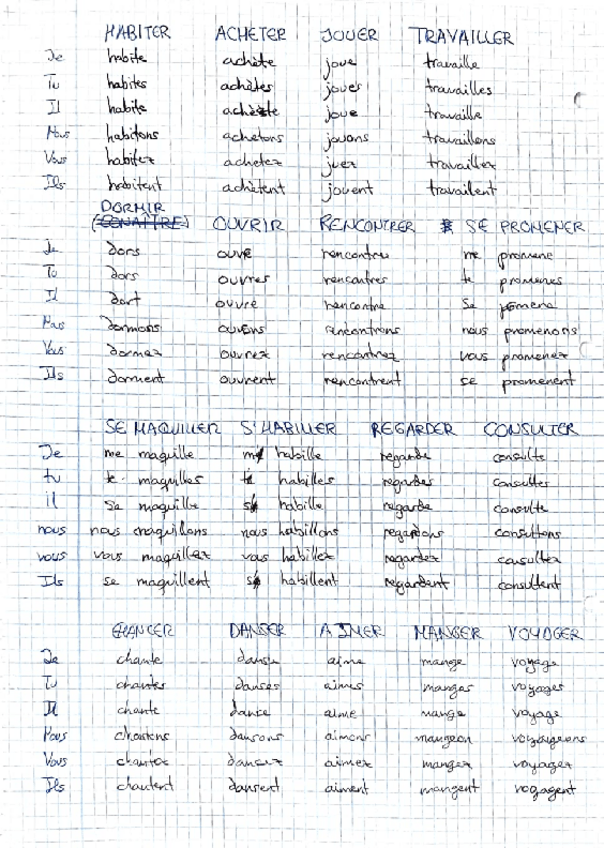 HABITER ACHETER JOUER TRAVAILLER
Je habite achète joue travaille
Tu habites achètes joues travailles
Il habite achète joue travaille
Nous habitons achetons jouons travaillons
Vous habitez achetez juez travaillez
Ils habitent achètent jouent travaillent
DORMIR
(CONAÎTRE) OUVRIR RENCONTRER SE PROMENER
Je dors ouvre rencontre me promene
Tu dors ouvres rencontres te promenes
Il dort ouvre rencontre se pomene
Nous dormons ouvens rencontrons nous promenons
Vous dormez ouvrez rencontrez vous promenez
Ils dorment ouvrent rencontrent se promenent
SE MAQUILLER S'HABILLER REGARDER CONSULTER
Je me maquille m' habille regarde consulte
tu te maquilles t' habilles regardes consultes
il se maquille s' habille regarde consulte
nous nous maquillons nous habillons regardons consultons
vous vous maquillez vous habillez regardez consultez
Ils se maquillent s' habillent regardent consultent
CHANTER DANSER AIMER MANGER VOYAGER
Je chante danse aime mange voyage
Tu chantes danses aimes manges voyages
Il chante danse aime mange voyage
Nous chantons dansons aimons mangeon voyageons
Vous chantez dansez aimez mangez voyagez
Ils chantent dansent aiment mangent voyagent